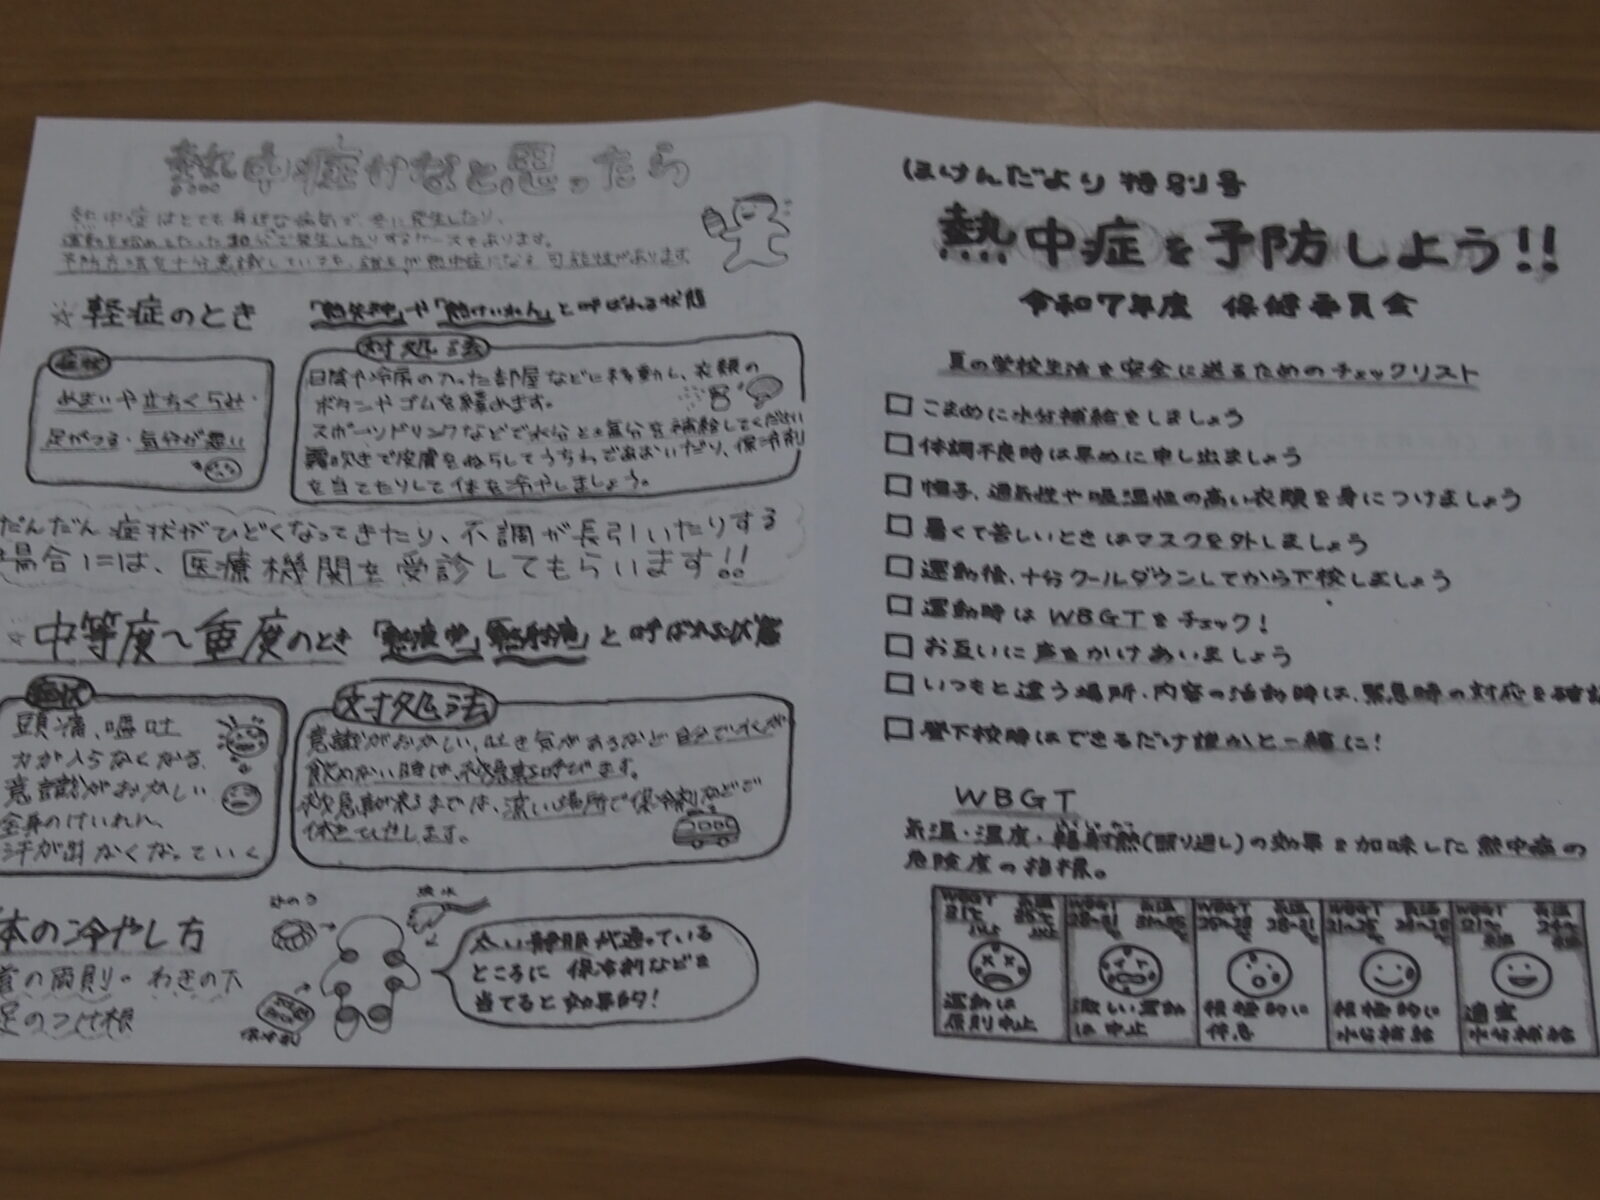 熱中症かなと思ったら
熱中症はとても身近な病気で、冬に発生したり、
運動を始めてたった30分で発生したりするケースもあります。
予防方法を十分意識していても、誰もが熱中症になる可能性があります
☆軽症のとき
「熱失神」や「熱けいれん」と呼ばれる状態
症状
めまいや立ちくらみ・
足がつる・気分が悪い
対処法
日陰や冷房の入った部屋などに移動し、衣類の
ボタンやゴムを緩めます。
スポーツドリンクなどで水分と塩分を補給してください
霧吹きで皮膚をぬらしてうちわであおいだり、保冷剤
を当てたりして体を冷やしましょう。
だんだん症状がひどくなってきたり、不調が長引いたりする
場合には、医療機関を受診してもらいます!!
☆中等度〜重度のとき
「熱疲労」「熱射病」と呼ばれる状態
症状
頭痛、嘔吐
力が入らなくなる、
意識がおかしい
全身のけいれん、
汗が出なくなっていく
対処法
意識がおかしい、吐き気があるなど自分で水が
飲めない時は、救急車を呼びます。
救急車が来るまでは、涼しい場所で保冷剤などで
体をひやします。
体の冷やし方
首の両側・わきの下
足のつけ根
氷のう
保冷剤
太い静脈が通っている
ところに保冷剤などを
当てると効果的!
ほけんだより特別号
熱中症を予防しよう!!
令和7年度 保健委員会
夏の学校生活を安全に送るためのチェックリスト
□こまめに水分補給をしましょう
□体調不良時は早めに申し出ましょう
□帽子、通気性や吸湿性の高い衣服を身につけましょう
□暑くて苦しいときはマスクを外しましょう
□運動後、十分クールダウンしてから下校しましょう
□運動時はWBGTをチェック!
□お互いに声をかけあいましょう
□いつもと違う場所・内容の活動時は、緊急時の対応を確認
□登下校時はできるだけ誰かと一緒に!
WBGT
気温・湿度・輻射熱(照り返し)の効果を加味した熱中症の
危険度の指標。
WBGT 気温
31℃ 35℃
以上 以上
運動は
原則中止
WBGT 気温
28~31 31~35
激しい運動
は中止
WBGT 気温
25~28 28~31
積極的に
休息
WBGT 気温
21~25 24~28
積極的に
水分補給
WBGT 気温
21℃ 24℃
未満 未満
適宜
水分補給